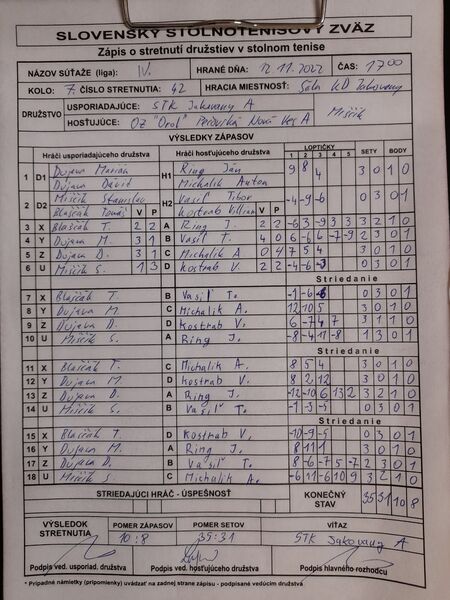 SLOVENSKÝ STOLNOTENISOVÝ ZVÄZ
Zápis o stretnutí družstiev v stolnom tenise
NÁZOV SÚŤAŽE (liga): IV. HRANÉ DŇA: 12.11.2022 ČAS: 17 00
KOLO: 7. ČÍSLO STRETNUTIA: 42 HRACIA MIESTNOSŤ: Sála KD Jakovany
DRUŽSTVO USPORIADAJÚCE: STK Jakovany A Miščík
HOSŤUJÚCE: OZ "Orol" Nová Ves A
VÝSLEDKY ZÁPASOV
Hráči usporiadajúceho družstva Hráči hosťujúceho družstva LOPTIČKY SETY BODY
1 2 3 4 5
1 D1 Dujava Marián H1 Ring Ján 9 8 4 3 0 1 0
Dujava Dávid Michalik Anton
2 D2 Miščík Stanislav H2 Vasiľ Tibor -4 -9 -6 0 3 0 1
Blaščák Tomáš V P Kostrab V P
3 X Blaščák T. 2 2 A Ring J. 2 2 -6 3 -9 3 3 3 2 1 0
4 Y Dujava M. 3 1 B Vasiľ T. 4 0 6 -6 6 -7 -9 2 3 0 1
5 Z Dujava D. 3 1 C Michalik A. 0 4 7 5 4 3 0 1 0
6 U Miščík S. 1 3 D Kostrab V. 2 2 -4 -6 -3 0 3 0 1
Striedanie
7 X Blaščák T. B Vasiľ T. -1 -6 -6 0 3 0 1
8 Y Dujava M. C Michalik A. 12 10 5 3 0 1 0
9 Z Dujava D. D Kostrab V. 6 -7 4 7 3 1 1 0
10 U Miščík S. A Ring J. -8 -4 11 -8 1 3 0 1
Striedanie
11 X Blaščák T. C Michalik A. 8 5 4 3 0 1 0
12 Y Dujava M. D Kostrab V. 8 2 12 3 0 1 0
13 Z Dujava D. A Ring J. -12 -10 6 13 2 3 2 1 0
14 U Miščík S. B Vasiľ T. -1 -3 -5 0 3 0 1
Striedanie
15 X Blaščák T. D Kostrab V. -10 -9 -5 0 3 0 1
16 Y Dujava M. A Ring J. 8 11 1 3 0 1 0
17 Z Dujava D. B Vasiľ T. 8 -6 -7 5 -7 2 3 0 1
18 U Miščík S. C Michalik A. -6 11 -6 10 9 3 2 1 0
STRIEDAJÚCI HRÁČ - ÚSPEŠNOSŤ KONEČNÝ STAV 35 31 10 8
VÝSLEDOK STRETNUTIA POMER ZÁPASOV POMER SETOV VÍŤAZ
10:8 35:31 STK Jakovany A
Podpis ved. usporiad. družstva Podpis ved. hosťujúceho družstva Podpis hlavného rozhodcu
* Prípadné námietky (pripomienky) uvádzať na zadnej strane zápisu - podpísané vedúcim družstva